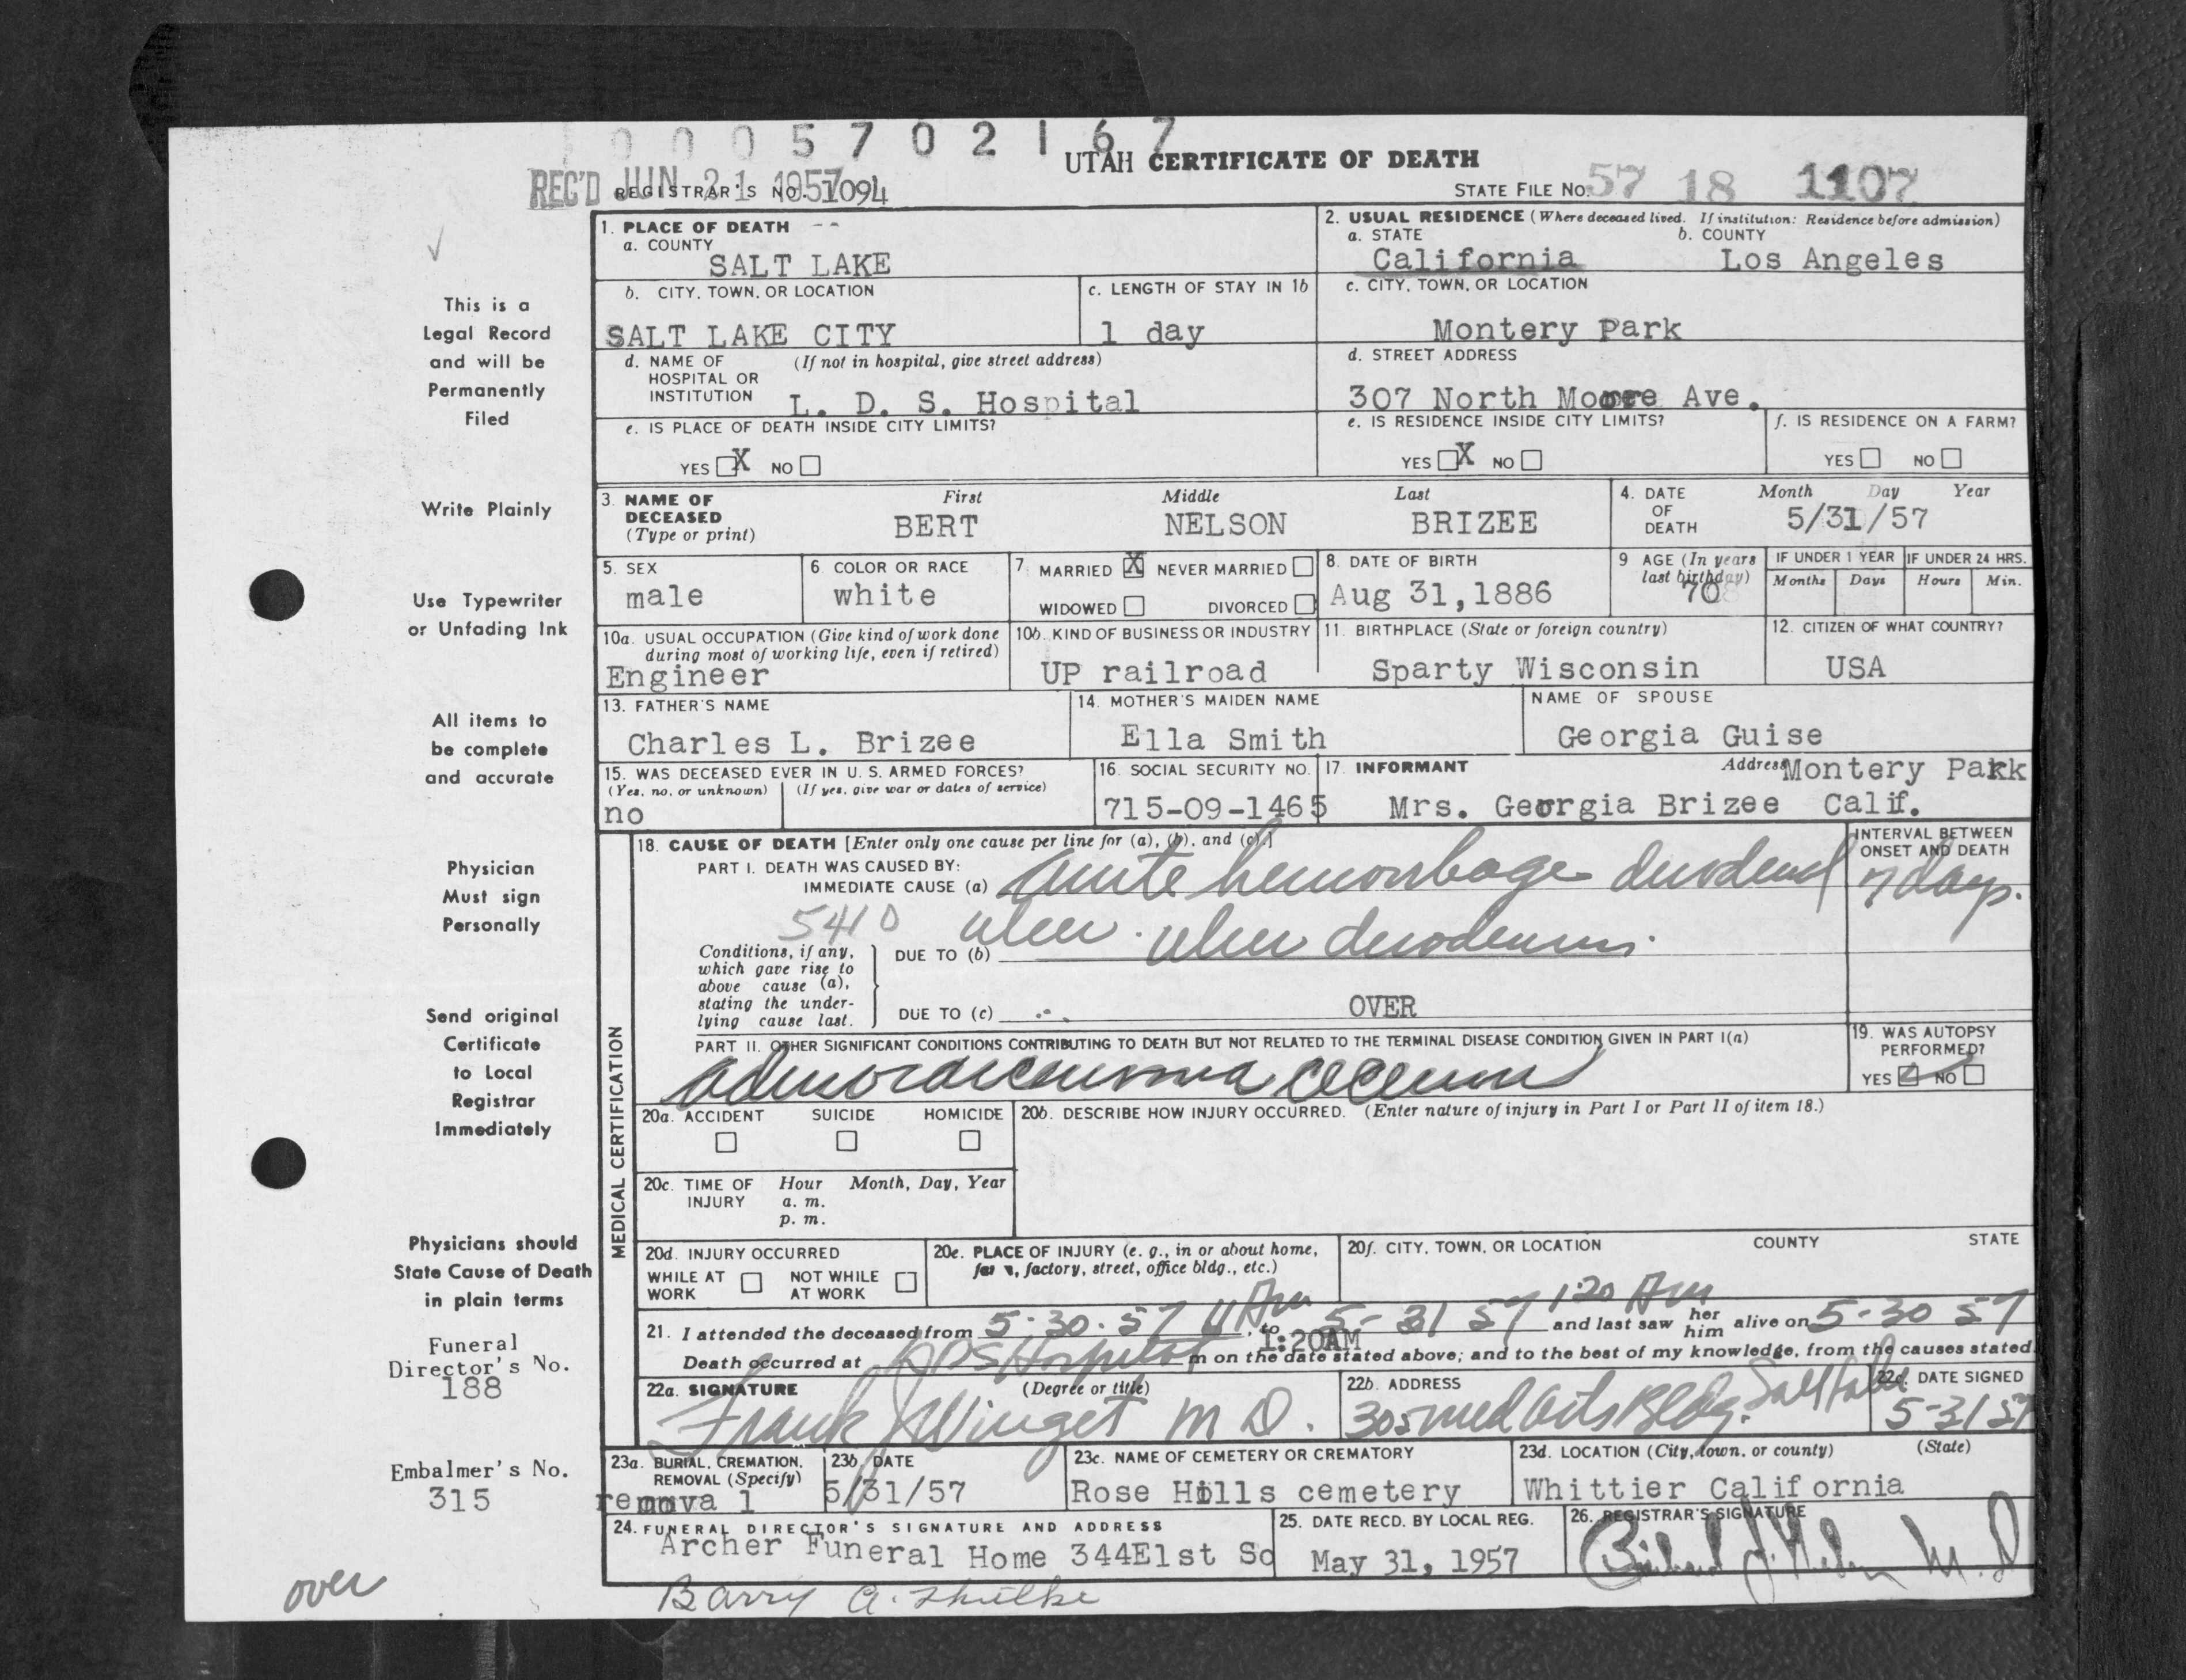 0005702167
UTAH CERTIFICATE OF DEATH
REC'D JUN 21 1957 REGISTRAR'S NO. 1094
STATE FILE NO. 57 18 1107
1. PLACE OF DEATH --
a. COUNTY
SALT LAKE
2. USUAL RESIDENCE (Where deceased lived. If institution: Residence before admission)
a. STATE b. COUNTY
California Los Angeles
b. CITY, TOWN, OR LOCATION
SALT LAKE CITY
c. LENGTH OF STAY IN 1b
1 day
c. CITY, TOWN, OR LOCATION
Montery Park
d. NAME OF HOSPITAL OR INSTITUTION (If not in hospital, give street address)
L. D. S. Hospital
d. STREET ADDRESS
307 North Moore Ave.
e. IS PLACE OF DEATH INSIDE CITY LIMITS?
YES X NO
e. IS RESIDENCE INSIDE CITY LIMITS?
YES X NO
f. IS RESIDENCE ON A FARM?
YES NO
3. NAME OF DECEASED (Type or print)
First Middle Last
BERT NELSON BRIZEE
4. DATE OF DEATH Month Day Year
5/31/57
5. SEX
male
6. COLOR OR RACE
white
7. MARRIED X NEVER MARRIED
WIDOWED DIVORCED
8. DATE OF BIRTH
Aug 31,1886
9 AGE (In years last birthday)
70
IF UNDER 1 YEAR IF UNDER 24 HRS.
Months Days Hours Min.
10a. USUAL OCCUPATION (Give kind of work done during most of working life, even if retired)
Engineer
10b. KIND OF BUSINESS OR INDUSTRY
UP railroad
11. BIRTHPLACE (State or foreign country)
Sparty Wisconsin
12. CITIZEN OF WHAT COUNTRY?
USA
13. FATHER'S NAME
Charles L. Brizee
14. MOTHER'S MAIDEN NAME
Ella Smith
NAME OF SPOUSE
Georgia Guise
15. WAS DECEASED EVER IN U. S. ARMED FORCES?
(Yes, no, or unknown) (If yes, give war or dates of service)
no
16. SOCIAL SECURITY NO.
715-09-1465
17. INFORMANT Address Montery Park
Mrs. Georgia Brizee Calif.
MEDICAL CERTIFICATION
18. CAUSE OF DEATH [Enter only one cause per line for (a), (b), and (c).]
PART I. DEATH WAS CAUSED BY:
IMMEDIATE CAUSE (a) acute hemorrhage duodenal
5410 ulcer.
INTERVAL BETWEEN ONSET AND DEATH
7 days.
Conditions, if any, which gave rise to above cause (a), stating the underlying cause last.
DUE TO (b) ulcer duodenum.
DUE TO (c) OVER
PART II. OTHER SIGNIFICANT CONDITIONS CONTRIBUTING TO DEATH BUT NOT RELATED TO THE TERMINAL DISEASE CONDITION GIVEN IN PART I(a)
adenocarcinoma cecum
19. WAS AUTOPSY PERFORMED?
YES NO
20a. ACCIDENT SUICIDE HOMICIDE
20b. DESCRIBE HOW INJURY OCCURRED. (Enter nature of injury in Part I or Part II of item 18.)
20c. TIME OF INJURY Hour Month, Day, Year
a. m.
p. m.
20d. INJURY OCCURRED
WHILE AT WORK NOT WHILE AT WORK
20e. PLACE OF INJURY (e. g., in or about home, farm, factory, street, office bldg., etc.)
20f. CITY, TOWN, OR LOCATION COUNTY STATE
21. I attended the deceased from 5-30-57 11 Am, to 5-31 57 1:20 Am and last saw her him alive on 5-30 57
Death occurred at LDS Hospital 1:20AM m on the date stated above; and to the best of my knowledge, from the causes stated.
22a. SIGNATURE (Degree or title)
Frank J Winget M D.
22b. ADDRESS
305 Med Arts Bldg. Salt Lake
22c. DATE SIGNED
5-31 57
23a. BURIAL, CREMATION, REMOVAL (Specify)
remova l
23b. DATE
5/31/57
23c. NAME OF CEMETERY OR CREMATORY
Rose Hills cemetery
23d. LOCATION (City, town, or county) (State)
Whittier California
24. FUNERAL DIRECTOR'S SIGNATURE AND ADDRESS
Archer Funeral Home 344E1st So
25. DATE RECD. BY LOCAL REG.
May 31, 1957
26. REGISTRAR'S SIGNATURE
M.D
Barry A.
This is a
Legal Record
and will be
Permanently
Filed
Write Plainly
Use Typewriter
or Unfading Ink
All items to
be complete
and accurate
Physician
Must sign
Personally
Send original
Certificate
to Local
Registrar
Immediately
Physicians should
State Cause of Death
in plain terms
Funeral
Director's No.
188
Embalmer's No.
315
over